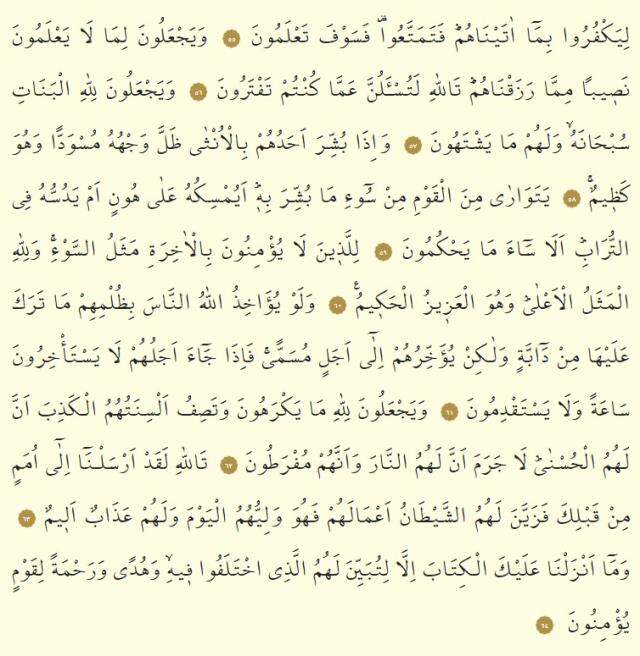 لِيَكْفُرُوا بِمَٓا اٰتَيْنَاهُمْۜ فَتَمَتَّعُوا۠ فَسَوْفَ تَعْلَمُونَ ٥٥ وَيَجْعَلُونَ لِمَا لَا يَعْلَمُونَ
نَص۪يباً مِمَّا رَزَقْنَاهُمْۜ تَاللّٰهِ لَتُسْـَٔلُنَّ عَمَّا كُنْتُمْ تَفْتَرُونَ ٥٦ وَيَجْعَلُونَ لِلّٰهِ الْبَنَاتِ
سُبْحَانَهُۙ وَلَهُمْ مَا يَشْتَهُونَ ٥٧ وَاِذَا بُشِّرَ اَحَدُهُمْ بِالْاُنْثٰى ظَلَّ وَجْهُهُ مُسْوَداًّ وَهُوَ
كَظ۪يمٌۚ ٥٨ يَتَوَارٰى مِنَ الْقَوْمِ مِنْ سُٓوءِ مَا بُشِّرَ بِه۪ۜ اَيُمْسِكُهُ عَلٰى هُونٍ اَمْ يَدُسُّهُ فِي
التُّرَابِۜ اَلَا سَٓاءَ مَا يَحْكُمُونَ ٥٩ لِلَّذ۪ينَ لَا يُؤْمِنُونَ بِالْاٰخِرَةِ مَثَلُ السَّوْءِۚ وَلِلّٰهِ
الْمَثَلُ الْاَعْلٰىۜ وَهُوَ الْعَز۪يزُ الْحَك۪يمُ۟ ٦٠ وَلَوْ يُؤَاخِذُ اللّٰهُ النَّاسَ بِظُلْمِهِمْ مَا تَرَكَ
عَلَيْهَا مِنْ دَٓابَّةٍ وَلٰكِنْ يُؤَخِّرُهُمْ اِلٰٓى اَجَلٍ مُسَمًّىۚ فَاِذَا جَٓاءَ اَجَلُهُمْ لَا يَسْتَأْخِرُونَ
سَاعَةً وَلَا يَسْتَقْدِمُونَ ٦١ وَيَجْعَلُونَ لِلّٰهِ مَا يَكْرَهُونَ وَتَصِفُ اَلْسِنَتُهُمُ الْكَذِبَ اَنَّ
لَهُمُ الْحُسْنٰىۜ لَا جَرَمَ اَنَّ لَهُمُ النَّارَ وَاَنَّهُمْ مُفْرَطُونَ ٦٢ تَاللّٰهِ لَقَدْ اَرْسَلْنَٓا اِلٰٓى اُمَمٍ
مِنْ قَبْلِكَ فَزَيَّنَ لَهُمُ الشَّيْطَانُ اَعْمَالَهُمْ فَهُوَ وَلِيُّهُمُ الْيَوْمَ وَلَهُمْ عَذَابٌ اَل۪يمٌ ٦٣
وَمَٓا اَنْزَلْنَا عَلَيْكَ الْكِتَابَ اِلَّا لِتُبَيِّنَ لَهُمُ الَّذِي اخْتَلَفُوا ف۪يهِۙ وَهُدًى وَرَحْمَةً لِقَوْمٍ
يُؤْمِنُونَ ٦٤